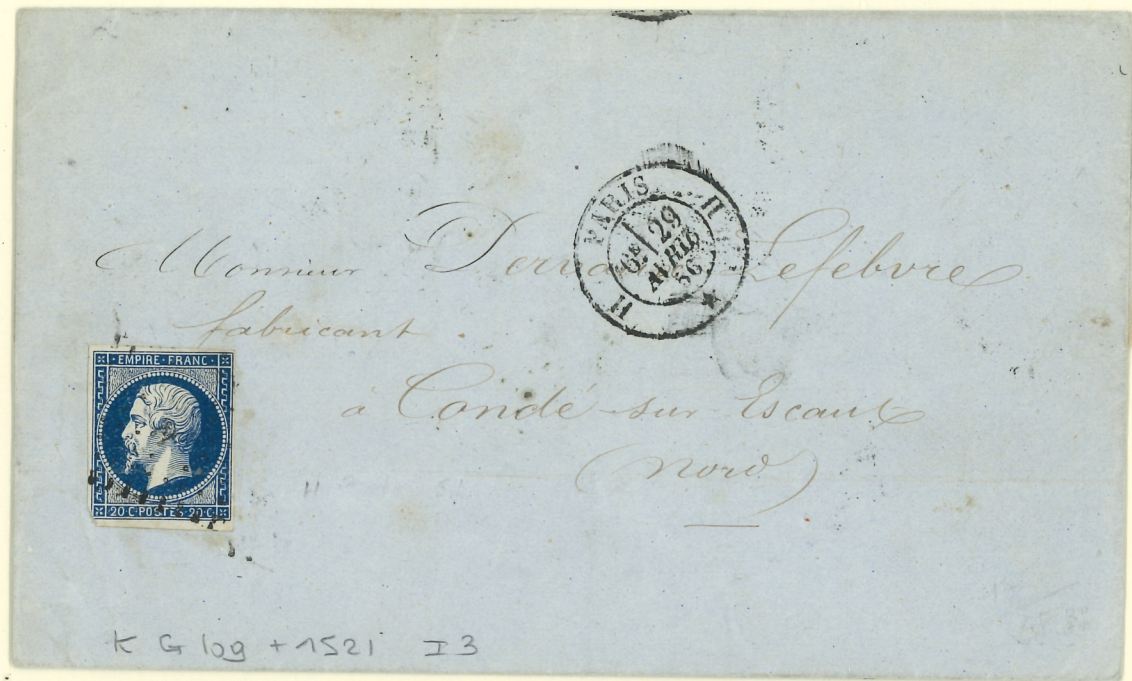 PARIS H
6E 29
AVRIL
56
H
Monsieur Lefebvre
fabricant
à Condé-sur-Escaut
(Nord)
EMPIRE FRANC
20 C POSTES 20 C
K G 109 + 1521 I 3